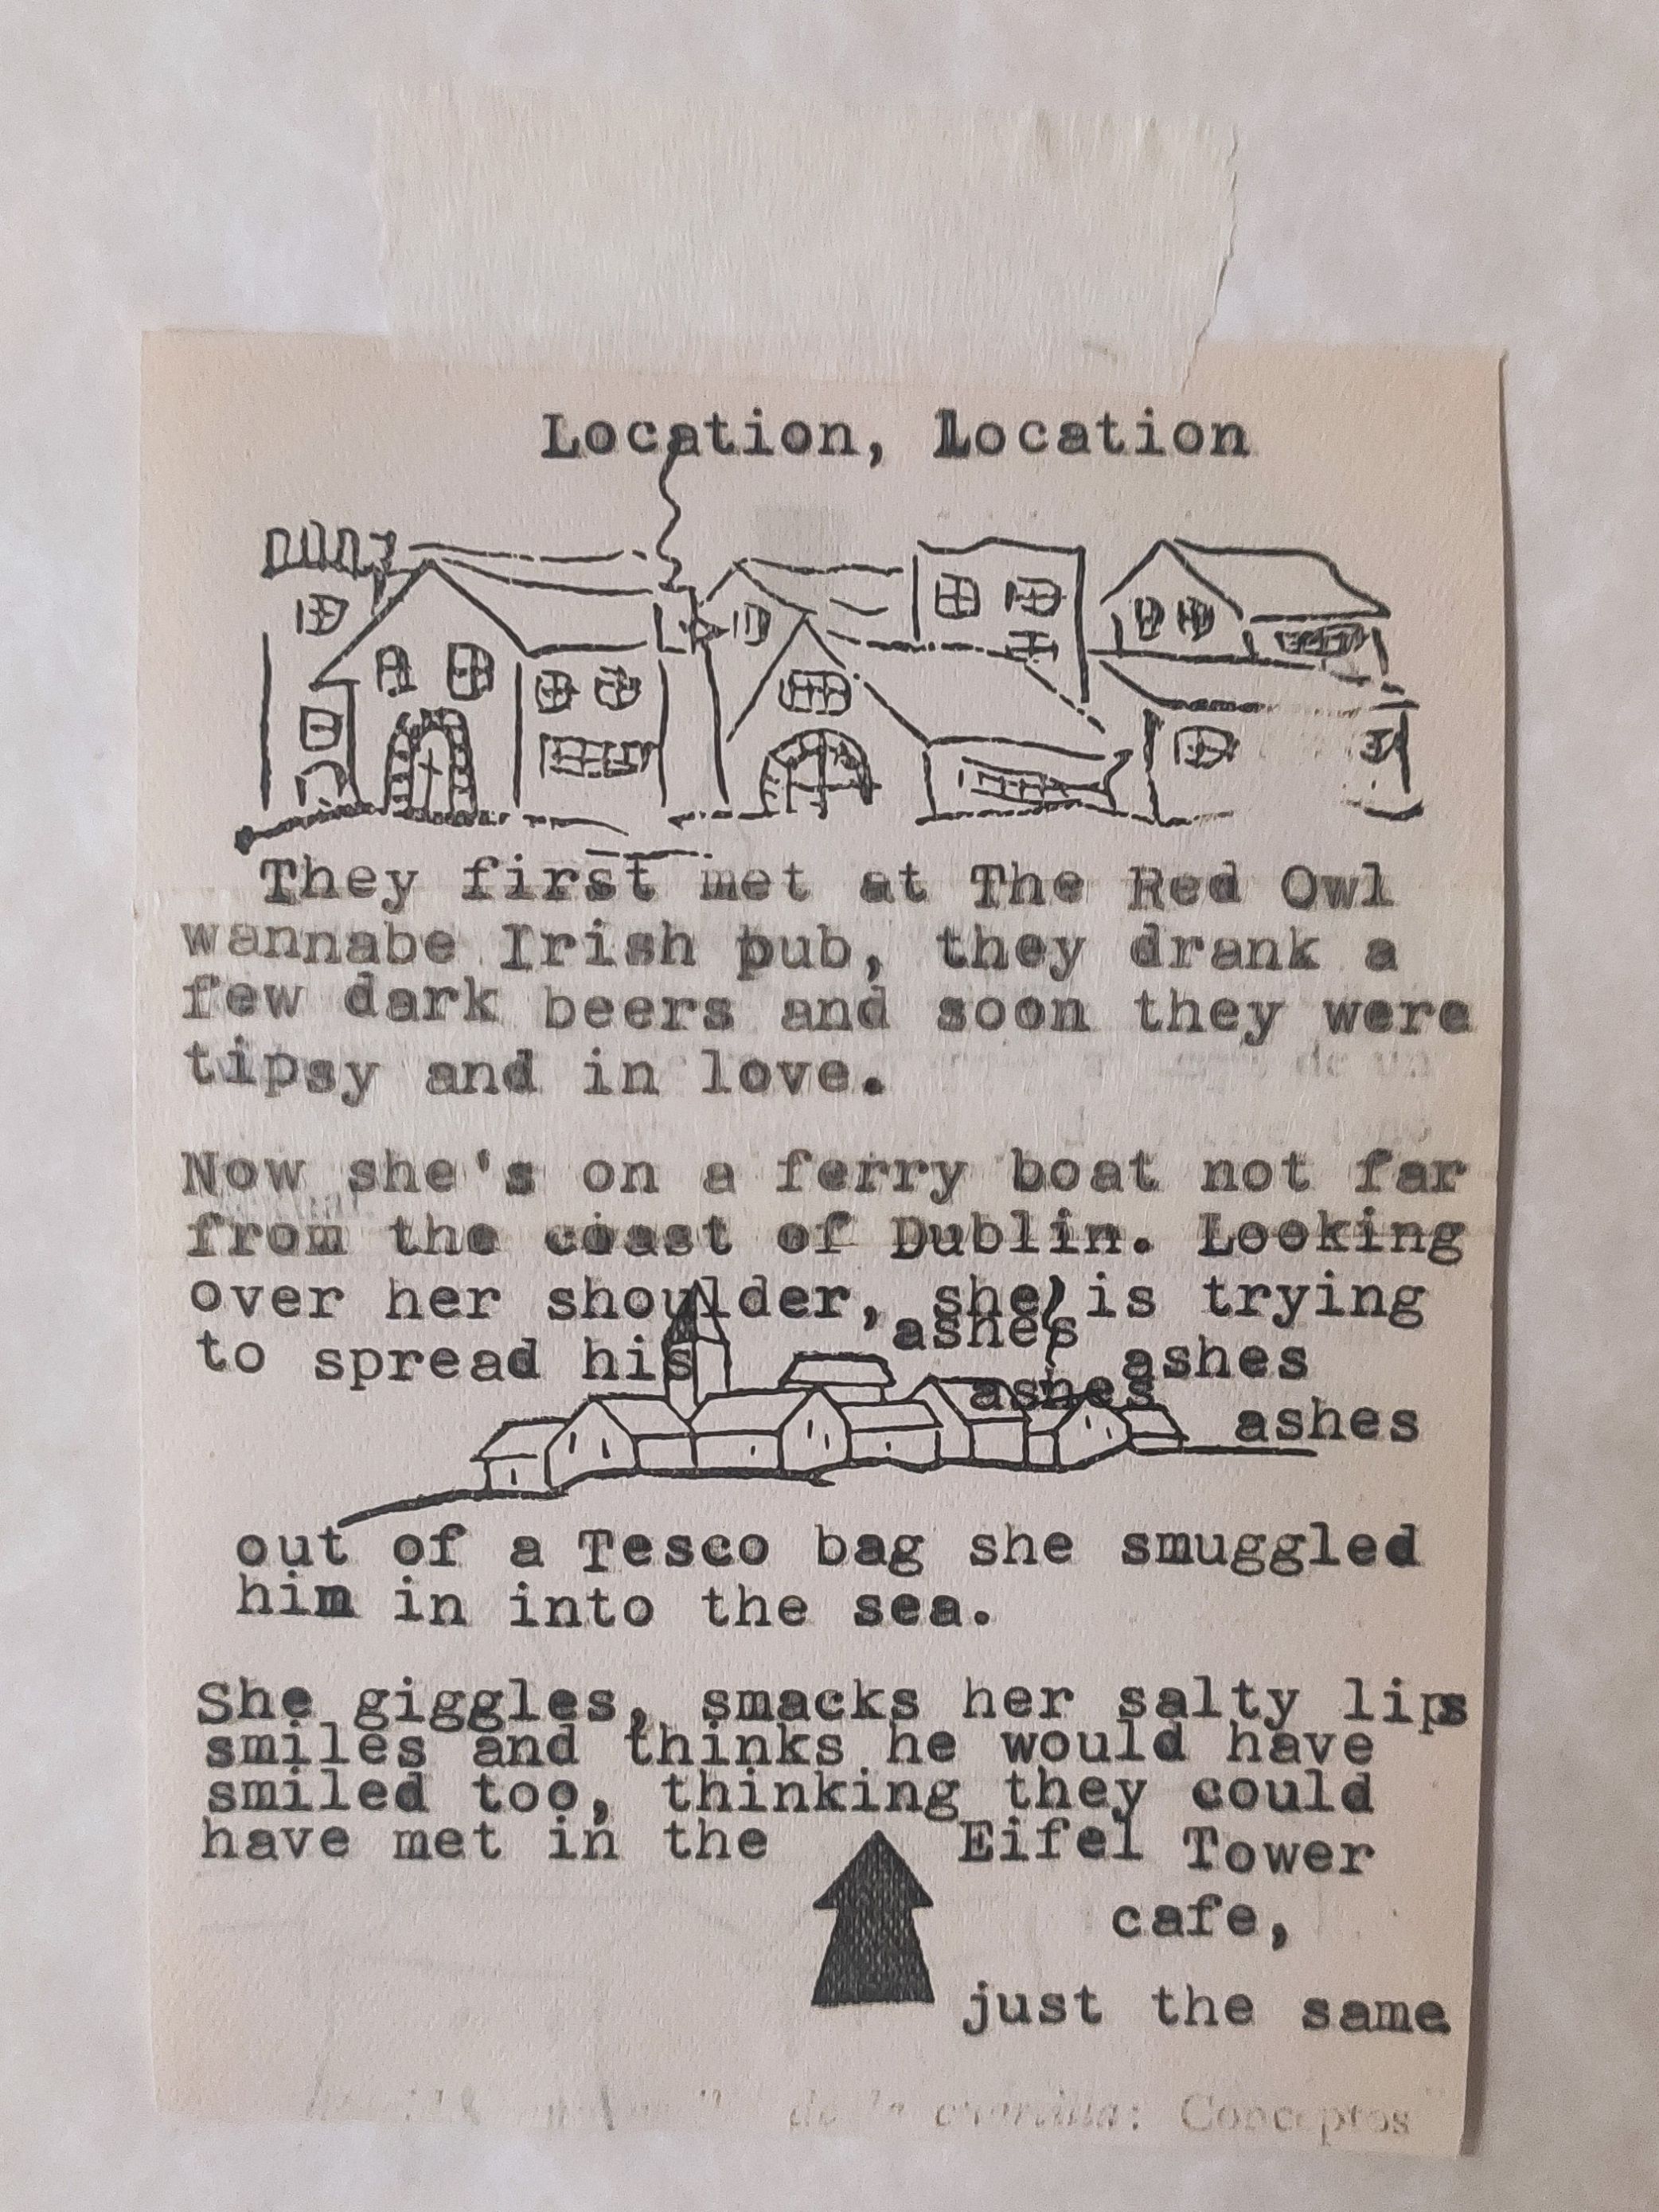 Location, Location
They first met at The Red Owl
wannabe Irish pub, they drank a
few dark beers and soon they were
tipsy and in love.
Now she's on a ferry boat not far
from the coast of Dublin. Looking
over her shoulder, she is trying
to spread his ashes ashes
ashes ashes
out of a Tesco bag she smuggled
him in into the sea.
She giggles, smacks her salty lips
smiles and thinks he would have
smiled too, thinking they could
have met in the Eifel Tower
cafe,
just the same
de la cuartilla: Conceptos